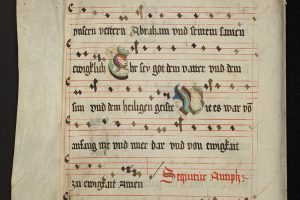 vnsern vettern Abraham vnd seinem samen
ewigklich Ehr sey got dem vatter vnd dem
sun vnd dem heiligen geiste Wie es war vō
anfang itz vnd imer dar vnd von ewigkait
zu ewigkait amen Sequitur Antiph: